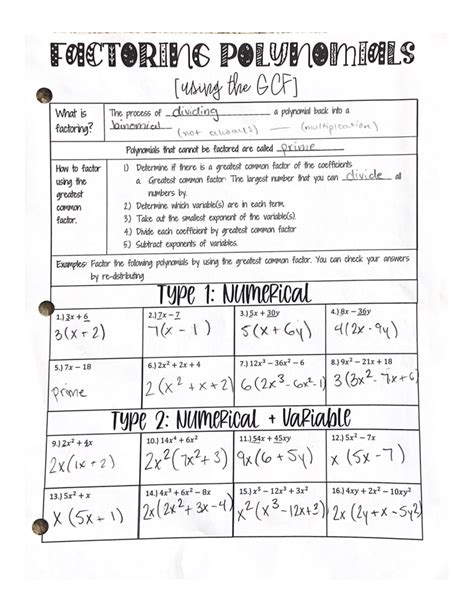 FACTORING POLYNOMIALS
[using the GCF]
What is factoring?
The process of dividing a polynomial back into a
binomial (not always) — (multiplication)
Polynomials that cannot be factored are called prime
How to factor using the greatest common factor.
1) Determine if there is a greatest common factor of the coefficients
a. Greatest common factor: The largest number that you can divide all
numbers by.
2) Determine which variable(s) are in each term.
3) Take out the smallest exponent of the variable(s).
4) Divide each coefficient by greatest common factor
5) Subtract exponents of variables.
Examples: Factor the following polynomials by using the greatest common factor. You can check your answers
by re-distributing
TYPE 1: NUMERICAL
1.) 3x + 6
3(x + 2)
2.) 7x − 7
7(x − 1)
3.) 5x + 30y
5(x + 6y)
4.) 8x − 36y
4(2x − 9y)
5.) 7x − 18
prime
6.) 2x² + 2x + 4
2(x² + x + 2)
7.) 12x³ − 36x² − 6
6(2x³ − 6x² − 1)
8.) 9x² − 21x + 18
3(3x² − 7x + 6)
TYPE 2: NUMERICAL + VARIABLE
9.) 2x² + 4x
2x(1x + 2)
10.) 14x⁴ + 6x²
2x²(7x² + 3)
11.) 54x + 45xy
9x(6 + 5y)
12.) 5x² − 7x
x(5x − 7)
13.) 5x² + x
x(5x + 1)
14.) 4x³ + 6x² − 8x
2x(2x² + 3x − 4)
15.) x⁵ − 12x³ + 3x²
x²(x³ − 12x + 3)
16.) 4xy + 2x² − 10xy²
2x(2y + x − 5y²)